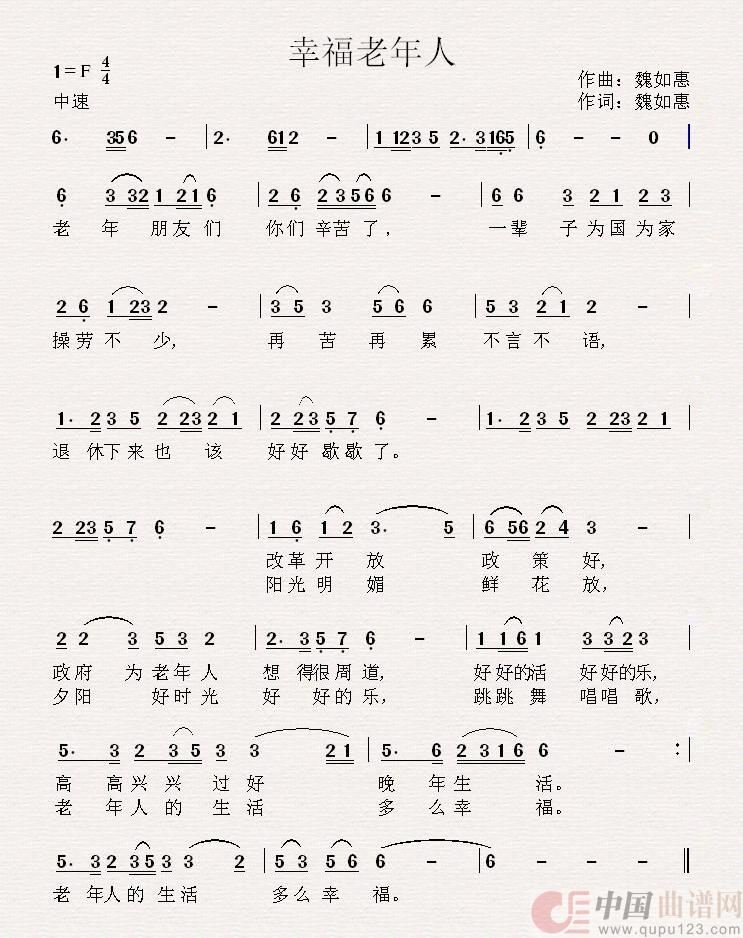 幸福老年人
1=F 4/4
作曲：魏如惠
中速
作词：魏如惠
6· 356 - | 2· 612 - | 1 123 5 2·3165 | 6 - - 0 |
6 3 32 1 21 6 | 2 6 2356 6 - | 6 6 3 2 1 2 3
老年朋友们 你们辛苦了， 一辈子为国为家
2 6 1 23 2 - | 3 5 3 5 6 6 | 5 3 2 1 2 - |
操劳不少， 再苦再累 不言不语，
1· 2 3 5 2 23 2 1 | 2 23 5 7 6 - | 1· 2 3 5 2 23 2 1 |
退休下来也该 好好歇歇了。
2 23 5 7 6 - | 1 6 1 2 3· 5 | 6 56 2 4 3 - |
改革开放 政策好，
阳光明媚 鲜花放，
2 2 3 5 3 2 | 2· 3 5 7 6 - | 1 1 6 1 3 3 2 3 |
政府为老年人 想得很周道， 好好的活 好好的乐，
夕阳 好时光 好好的乐， 跳跳舞 唱唱歌，
5· 3 2 3 5 3 2 1 | 5· 6 2 3 1 6 6 - :
高高兴兴过好 晚年生活。
老年人的生活 多么幸福。
5· 3 2 3 5 3 3 2 | 5 3 5 6 6 - | 6 - - - ‖
老年人的生活 多么幸福。
中国曲谱网
www.qupu123.com